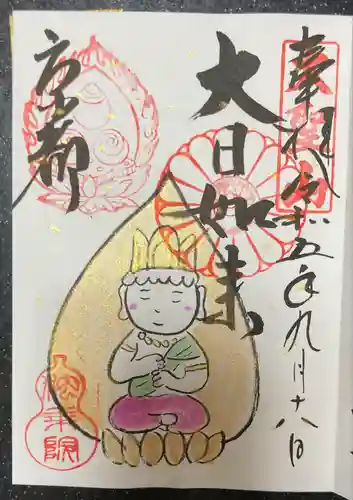 奉拝
令和五年九月十八日
大日如来
京都